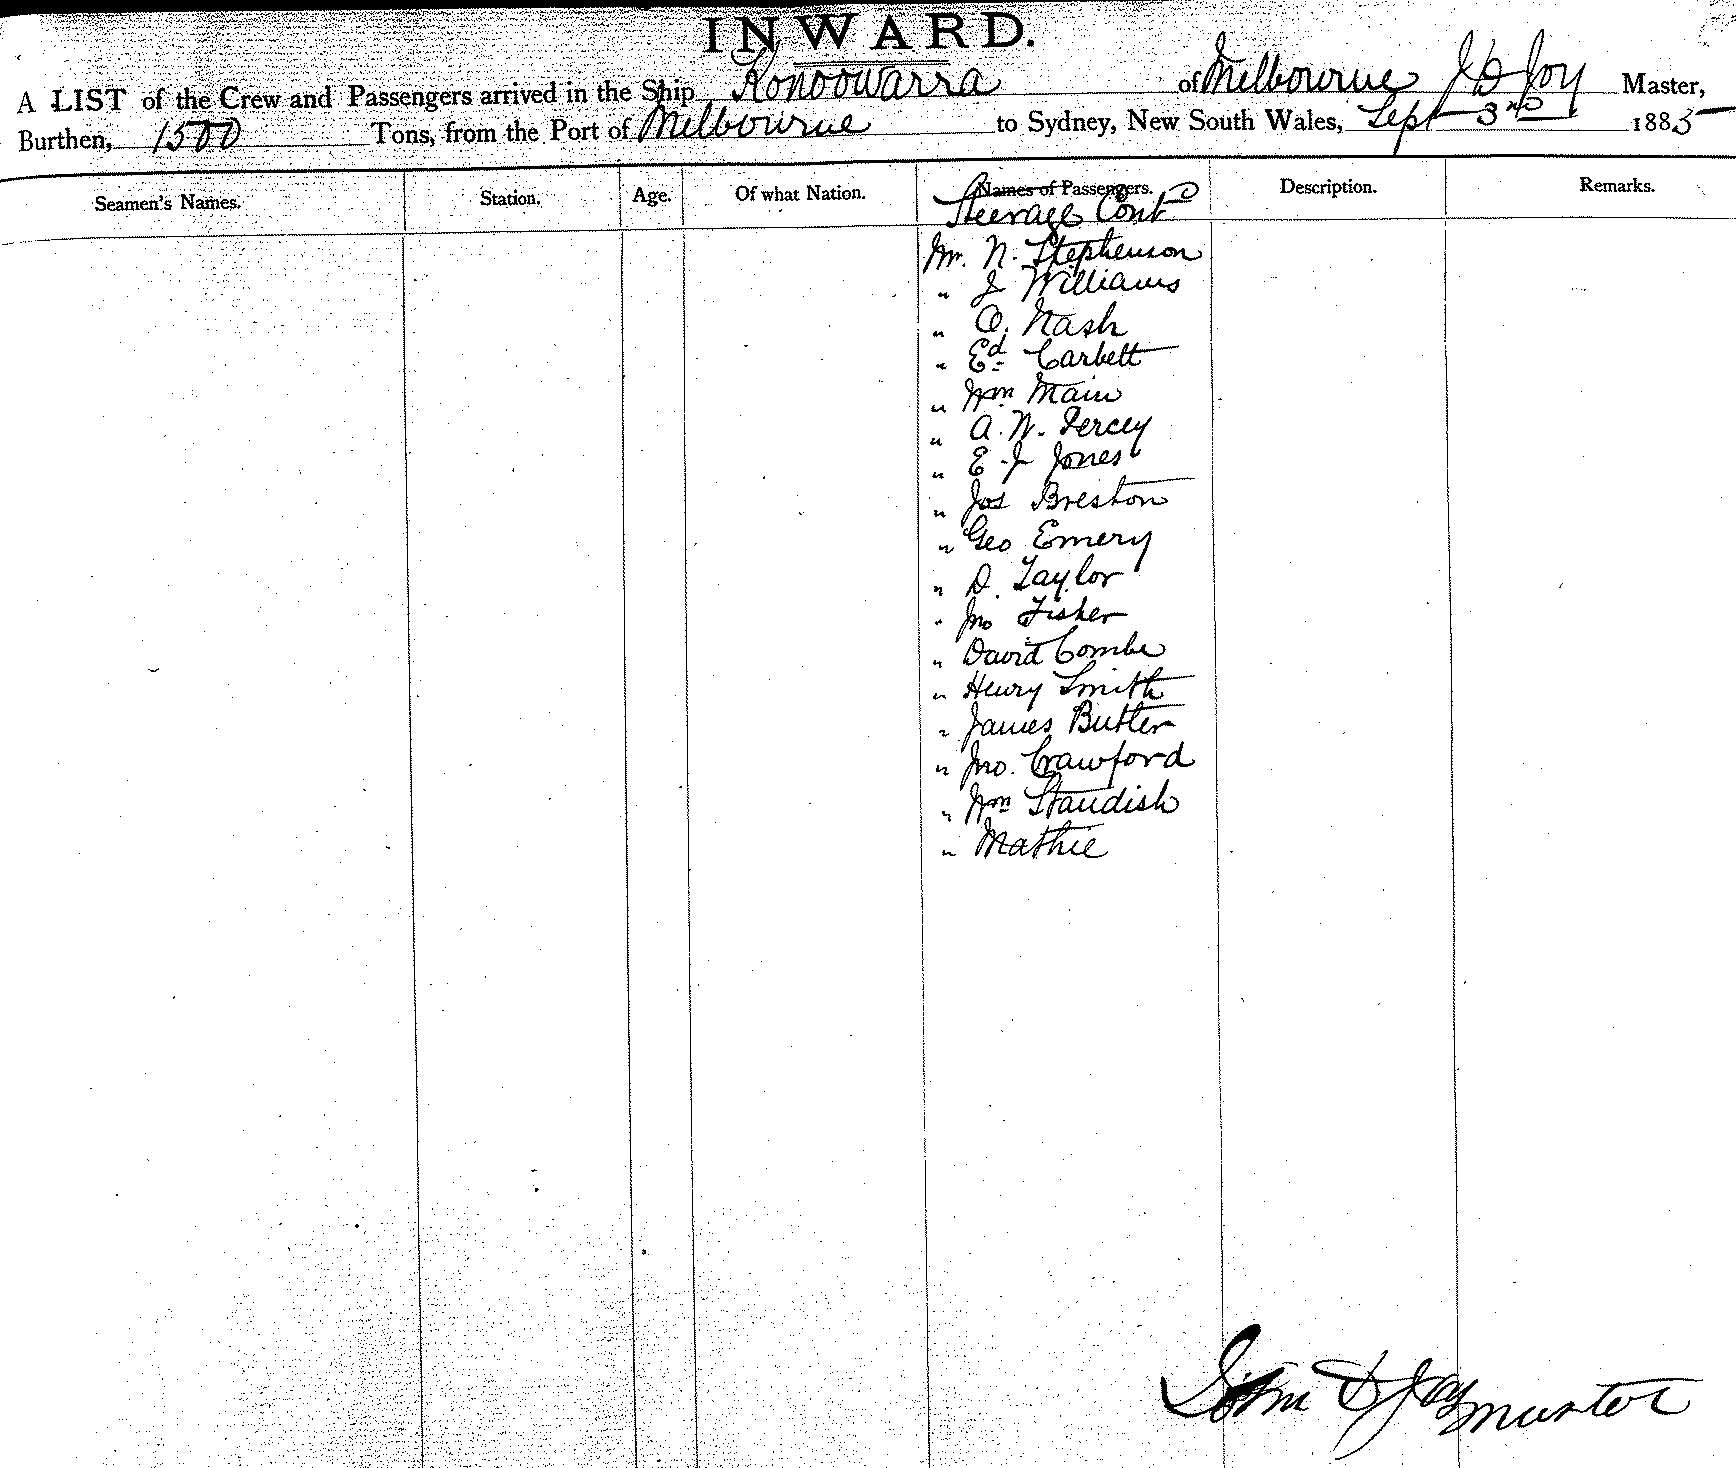 INWARD.
A LIST of the Crew and Passengers arrived in the Ship Konoowarra of Melbourne J D Joy Master,
Burthen, 1500 Tons, from the Port of Melbourne to Sydney, New South Wales, Sept 3rd 1885
Seamen's Names. Station. Age. Of what Nation. Names of Passengers. Description. Remarks.
Steerage Contd
Mr. N. Stephenson
" J Williams
" O. Nash
" Ed Carbett
" Wm Main
" A. W. Fercey
" E J Jones
" Jos Breston
" Geo Emery
" D. Taylor
" Jno Fisher
" David Combe
" Henry Smith
" James Butler
" Jno. Crawford
" Wm Standish
" Mathie
John D Joy master